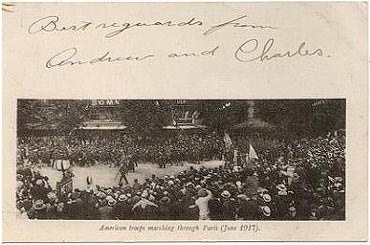 Best reguards from
Andrew and Charles.
American troops marching through Paris (June 1917)